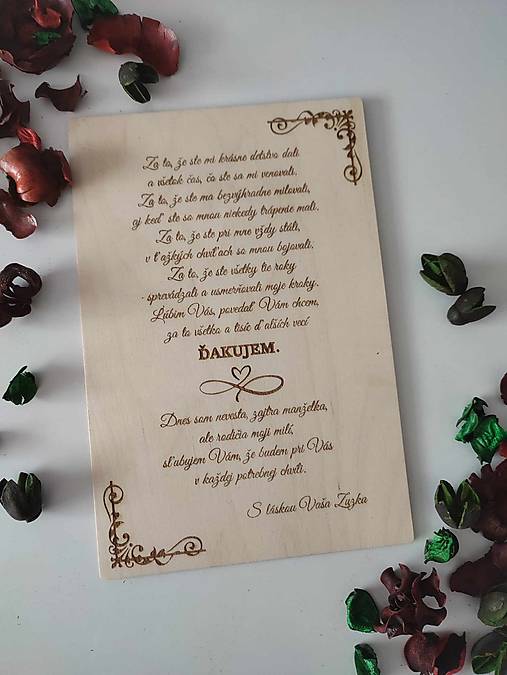 Za to, že ste mi krásne detstvo dali
a všetok čas, čo ste sa mi venovali.
Za to, že ste ma bezvýhradne milovali,
aj keď ste so mnou niekedy trápenie mali.
Za to, že ste pri mne vždy stáli,
v ťažkých chvíľach so mnou bojovali.
Za to, že ste všetky tie roky
sprevádzali a usmerňovali moje kroky.
Ľúbim Vás, povedať Vám chcem,
za to všetko a tisíc ďalších vecí
ĎAKUJEM.
Dnes som nevesta, zajtra manželka,
ale rodičia moji milí,
sľubujem Vám, že budem pri Vás
v každej potrebnej chvíli.
S láskou Vaša Zuzka